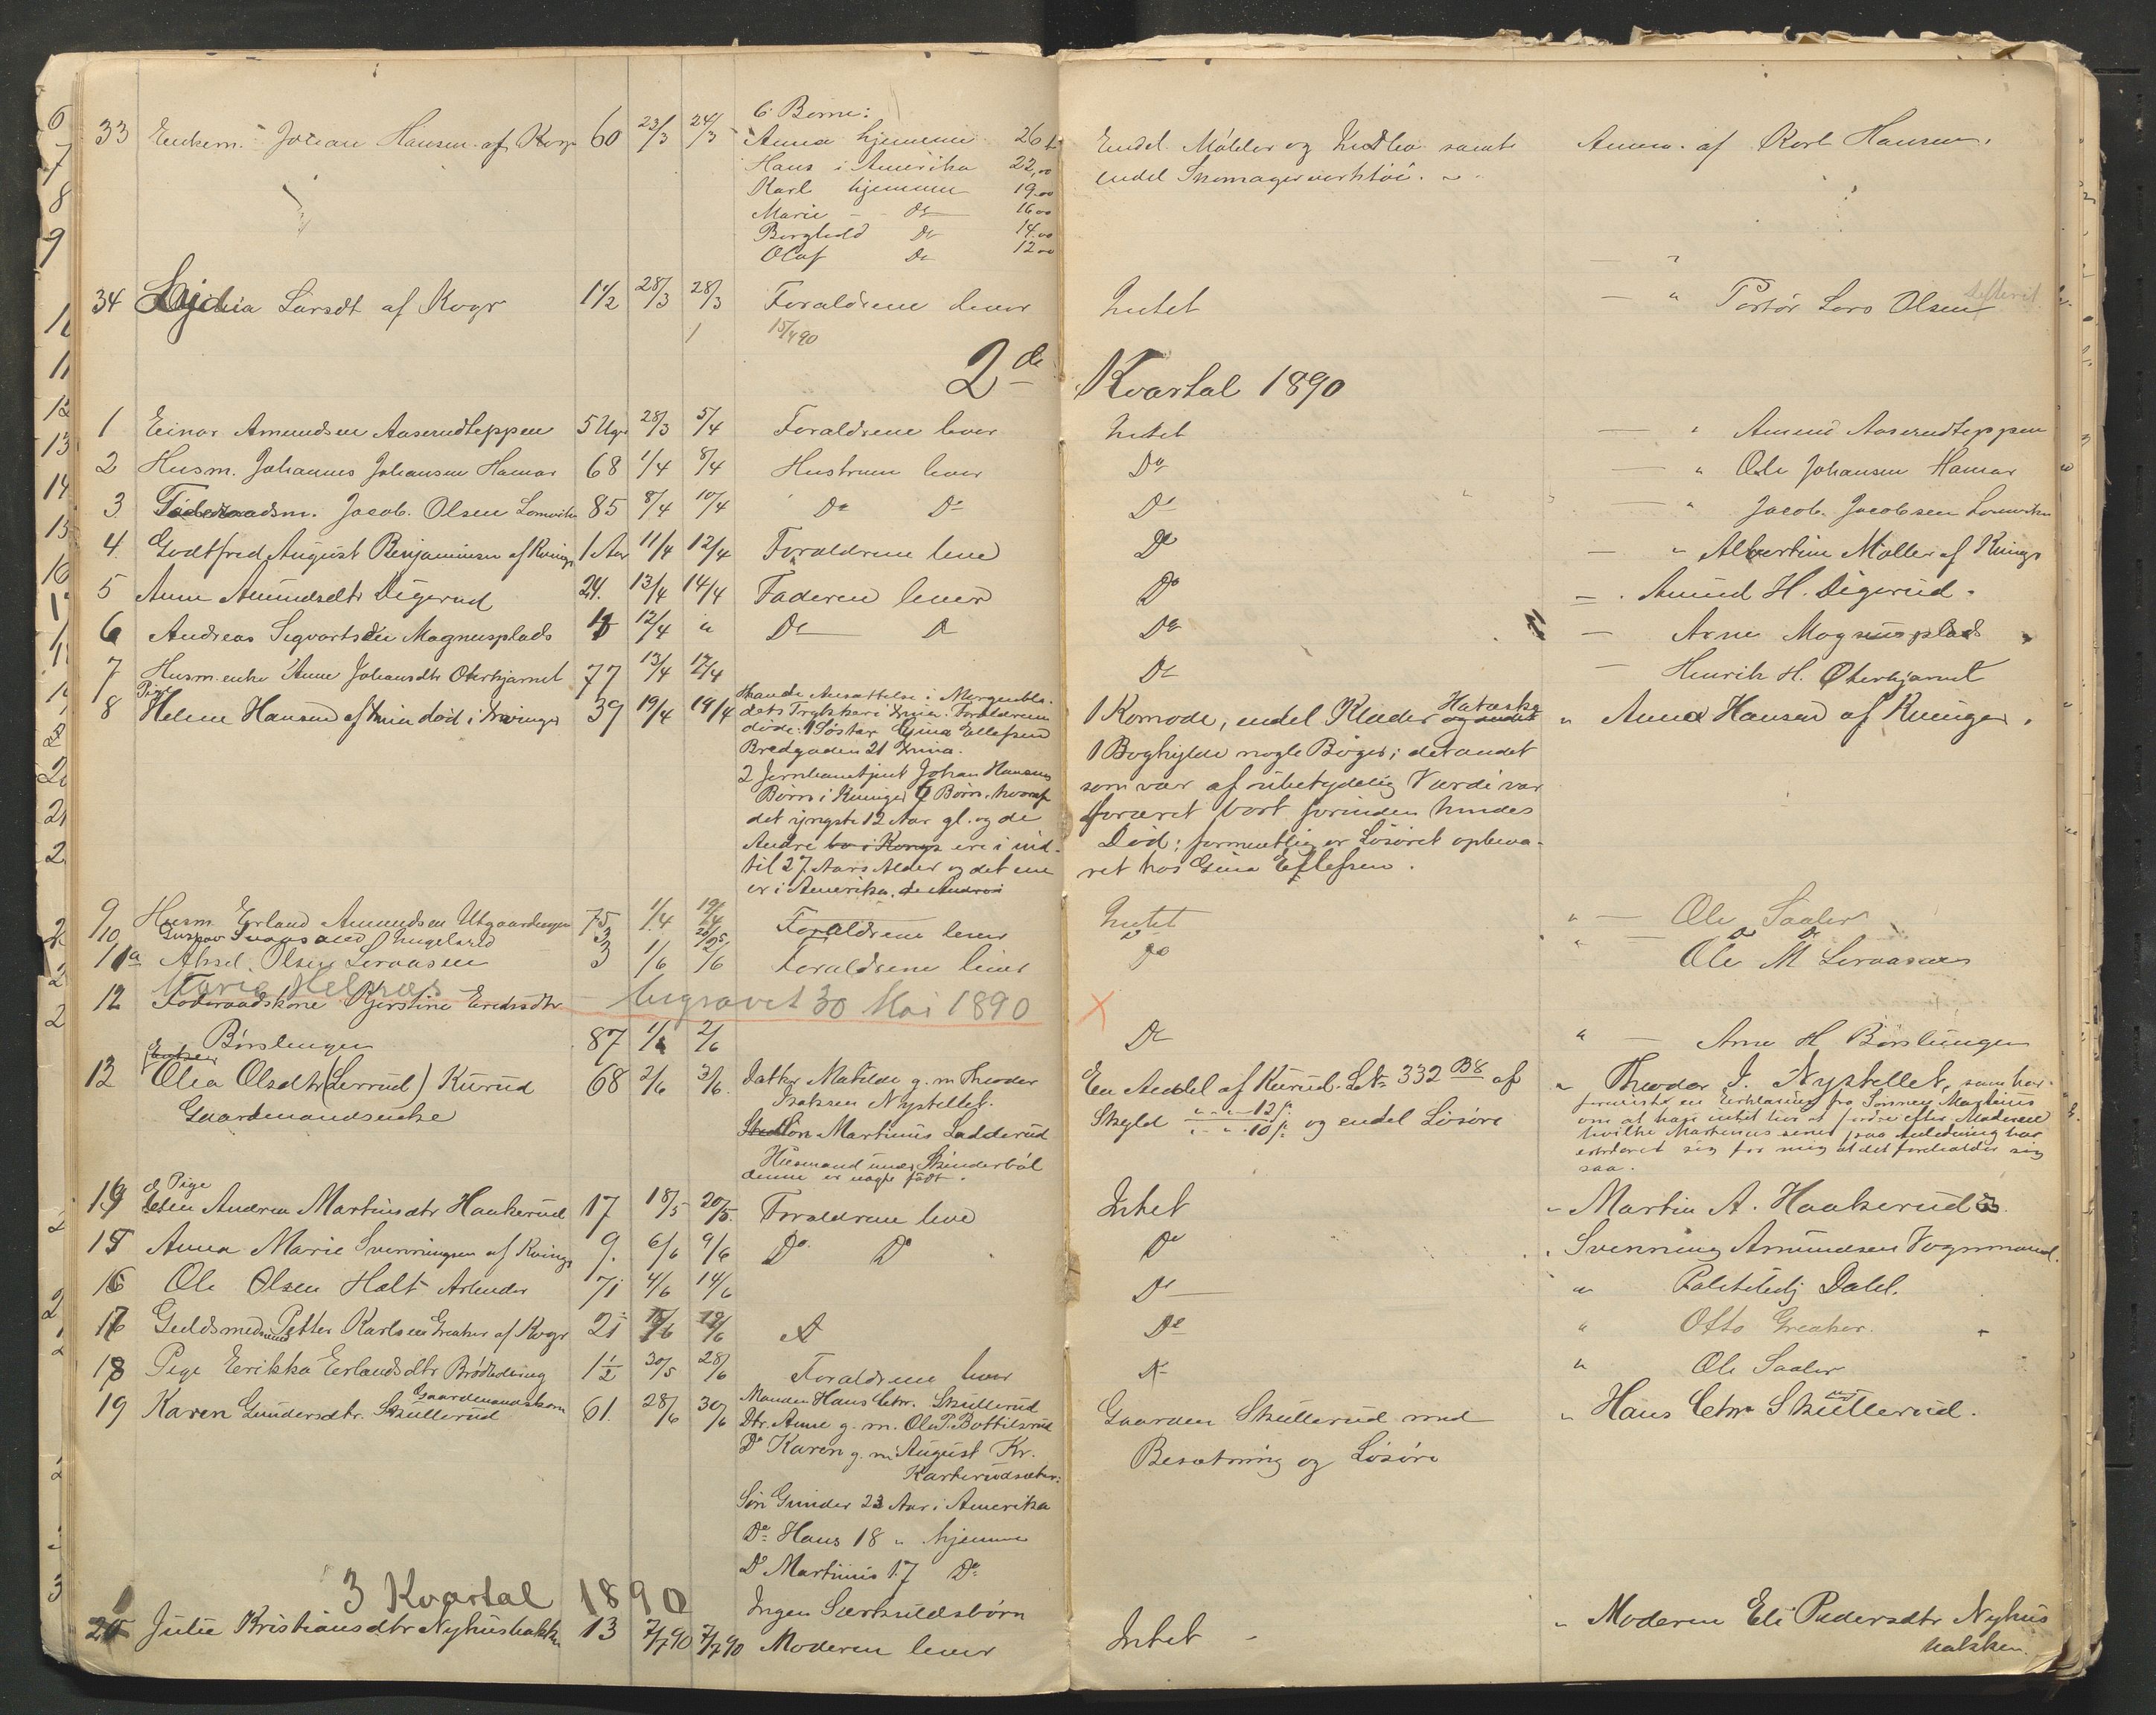 33 Enkem. Johan Hansen af Kvgr 60 23/3 24/3 6 Børn:
Anna hjemme 26
Hans i Amerika 22,00
Karl hjemme 19.00
Marie - Do 16.00
Borghild Do 14.00
Olaf Do 12.00
Endel Møbler og Indbo samt
endel Skomagerverktøi.
Anm. af Karl Hansen.
34 Lydia Larsdt af Kvgr 1 1/2 28/3 28/3 Forældrene lever Intet — " Portør Lars Olsen
15/4 90
2de Kvartal 1890
1 Einar Amundsen Aaserudteppen 5 Ugr 28/3 5/4 Forældrene lever Intet — " Amund Aaserudteppen
2 Husm. Johannes Johansen Hamar 68 1/4 8/4 Hustruen lever Do — " Ole Johansen Hamar
3 Føderaadsm. Jacob Olsen Lomviken 85 8/4 10/4 Do Do Do — " Jacob Jacobsen Lomviken
4 Godtfred August Benjaminsen af Kvinger 1 Aar 11/4 12/4 Forældrene leve Do — " Albertine Møller af Kvinger
5 Anne Amundsdtr Digerud 24. 13/4 14/4 Faderen lever Do — " Amund H. Digerud.
6 Andreas Sigvartsen Magnusplads 12/4 " Do Do Do — Arne Magnusplads
7 Husm.enke Anne Johansdtr Oterkjærnet 77 13/4 17/4 Do — Henrik H. Oterkjærnet
8 Pige Helene Hansen af Xnia død i Kvinger 39 19/4 19/4
Havde Ansættelse i Morgenbla-
dets Trykkeri Xnia. Forældrene
døde. 1 Søster Gina Ellefsen
Bredgaden 21 Xnia.
2 Jernbanetjent Johan Hansens
Børn i Kvinger 6 Børn, hvoraf
det yngste 12 Aar gl. og de
Andre bor i Kongs ere i ind-
til 27 Aars Alder og det ene
er i Amerika. de Andre i
1 Komode, endel Klæder Hatæske og andet
1 Boghylde nogle Bøger; det andet
som var af ubetydelig Værdi var
foræret bort forinden hendes
Død; formentlig er Løsøret opbeva-
ret hos Gina Ellefsen.
" Anna Hansen af Kvinger.
9 Husm. Erland Amundsen Utgaardengen 75 1/4 19/4 Intet " — Ole Saaler
10 Gustav 3 20/5 Forældrene lever Do Do
11a Aksel Olsen Leraasen 3 1/6 2/6 Forældrene lever Do " — Ole M Leraasen
Maria Helnæs — begravet 30 Mai 1890 X
12 Føderaadskone Kjerstine Eriksdtr
Børslengen 87 1/6 2/6 Do " — Arne H Børslungen
13 Enken Olia Olsdtr (Lerrud) Kurud 68 2/6 3/6
Gaardmandsenke
Datter Matilde g. m Theodor
Isaksen Nystellet.
Søn Martinus Ladderud
Husmand under Skinderbøl
denne er uægte født.
En Andel af Kurud L.No 332 B8 af
Skyld " - " - 12 s.
" - " - 10 s. og endel Løsøre
" Theodor I. Nystellet, som har
forevist en Erklæring fra Sønnen Martinus
om at have intet her at fordre efter Moderen
hvilke Martinus senes paa Anledning har
erklæret sig for mig at det forholder sig
saa.
14 Pige Elen Andrea Martinsdtr Haakerud 17 18/5 20/5. Forældrene leve Intet " Martin A. Haakerud
15 Anna Marie Svenningsen af Kvinger 9. 6/6 9/6 Do Do Do " Svenning Amundsen Vognmand.
16 Ole Olsen Holt Arbeider 71 4/6 14/6 Do " Politibetj Dahl.
17 Guldsmedsvend Petter Karlsen Greaker af Kvgr 21 Do " Otto Greaker.
18 Pige Eerikka Erlandsdtr Brødbøleng 1 1/2 30/5 28/6 Forældrene lever Do " Ole Saaler
19 Karen Gundersdtr. Skullerud Gaardmandskone 61. 28/6 30/6
Manden Hans Chr. Skullerud
Dtr. Anne g. m. Ole P. Bottilsrud
Do Karen g. m August Kr.
Karterudsæter:
Søn Gunder 23 Aar i Amerika
Do Hans 18 " hjemme
Do Martinus 17 Do
Ingen Særkuldsbørn
Gaarden Skullerud med
Besætning og Løsøre
" Hans Chr. Skullerud.
3 Kvartal 1890
1 Julie Kristiansdtr Nyhusbakken 13 7/7 90 7/7 90 Moderen lever Intet " Moderen Eli Pedersdtr Nyhus
bakken.